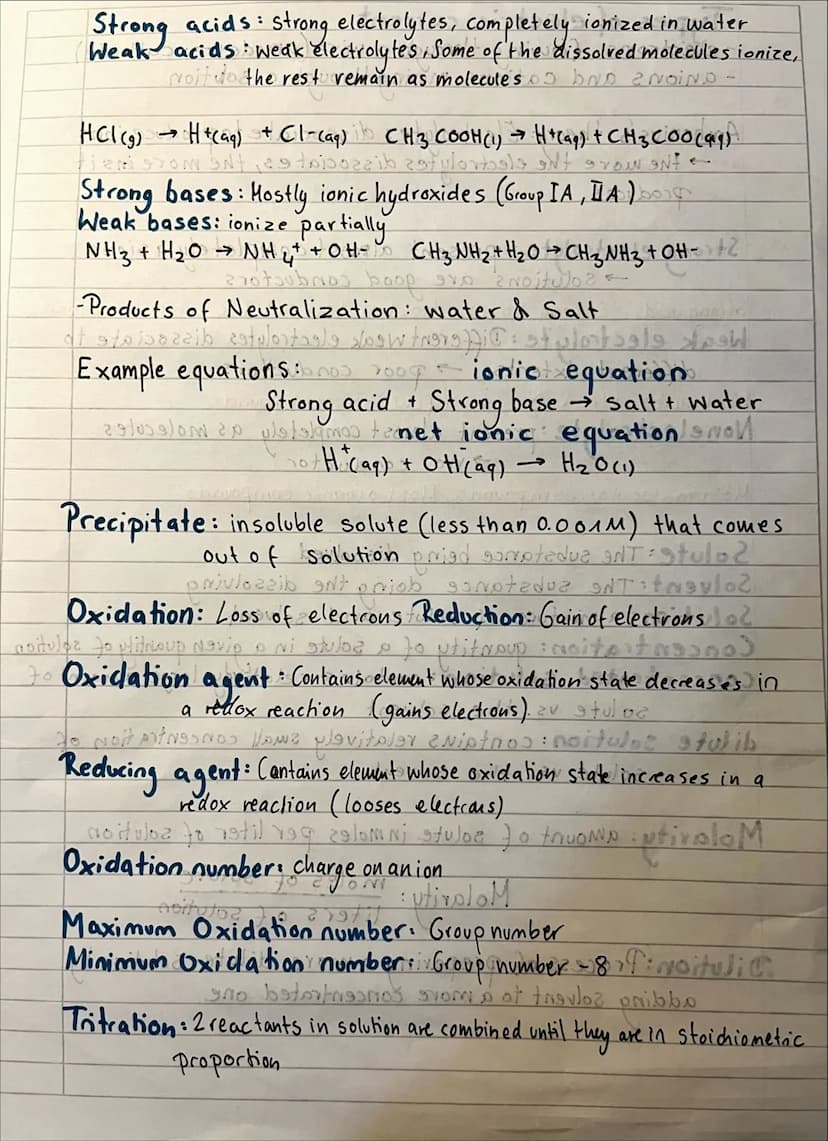 Strong acids: Strong electrolytes, completely ionized in water
Weak acids: weak electrolytes, Some of the dissolved molecules ionize,
the rest remain as molecules
HCl(g) → H+(aq) + Cl-(aq) CH3COOH(l) → H+(aq) + CH3COO(aq)
Strong bases: Mostly ionic hydroxides (Group IA, IIA)
Weak bases: ionize partially
NH3 + H2O → NH4+ + OH- CH3NH2+H2O → CH3NH3 + OH-
-Products of Neutralization: water & Salt
Example equations: ionic equation
Strong acid + Strong base → salt + water
net ionic equation
H+(aq) + OH-(aq) → H2O(l)
Precipitate: insoluble solute (less than 0.001M) that comes
out of solution
Oxidation: Loss of electrons Reduction: Gain of electrons
Oxidation agent: Contains element whose oxidation state decreases in
a redox reaction (gains electrons)
Reducing agent: Contains element whose oxidation state increases in a
redox reaction (looses electrons)
Oxidation number: charge on an ion
Maximum Oxidation number: Group number
Minimum Oxidation number: Group number -8
Tritration: 2 reactants in solution are combined until they are in stoichiometric
proportion